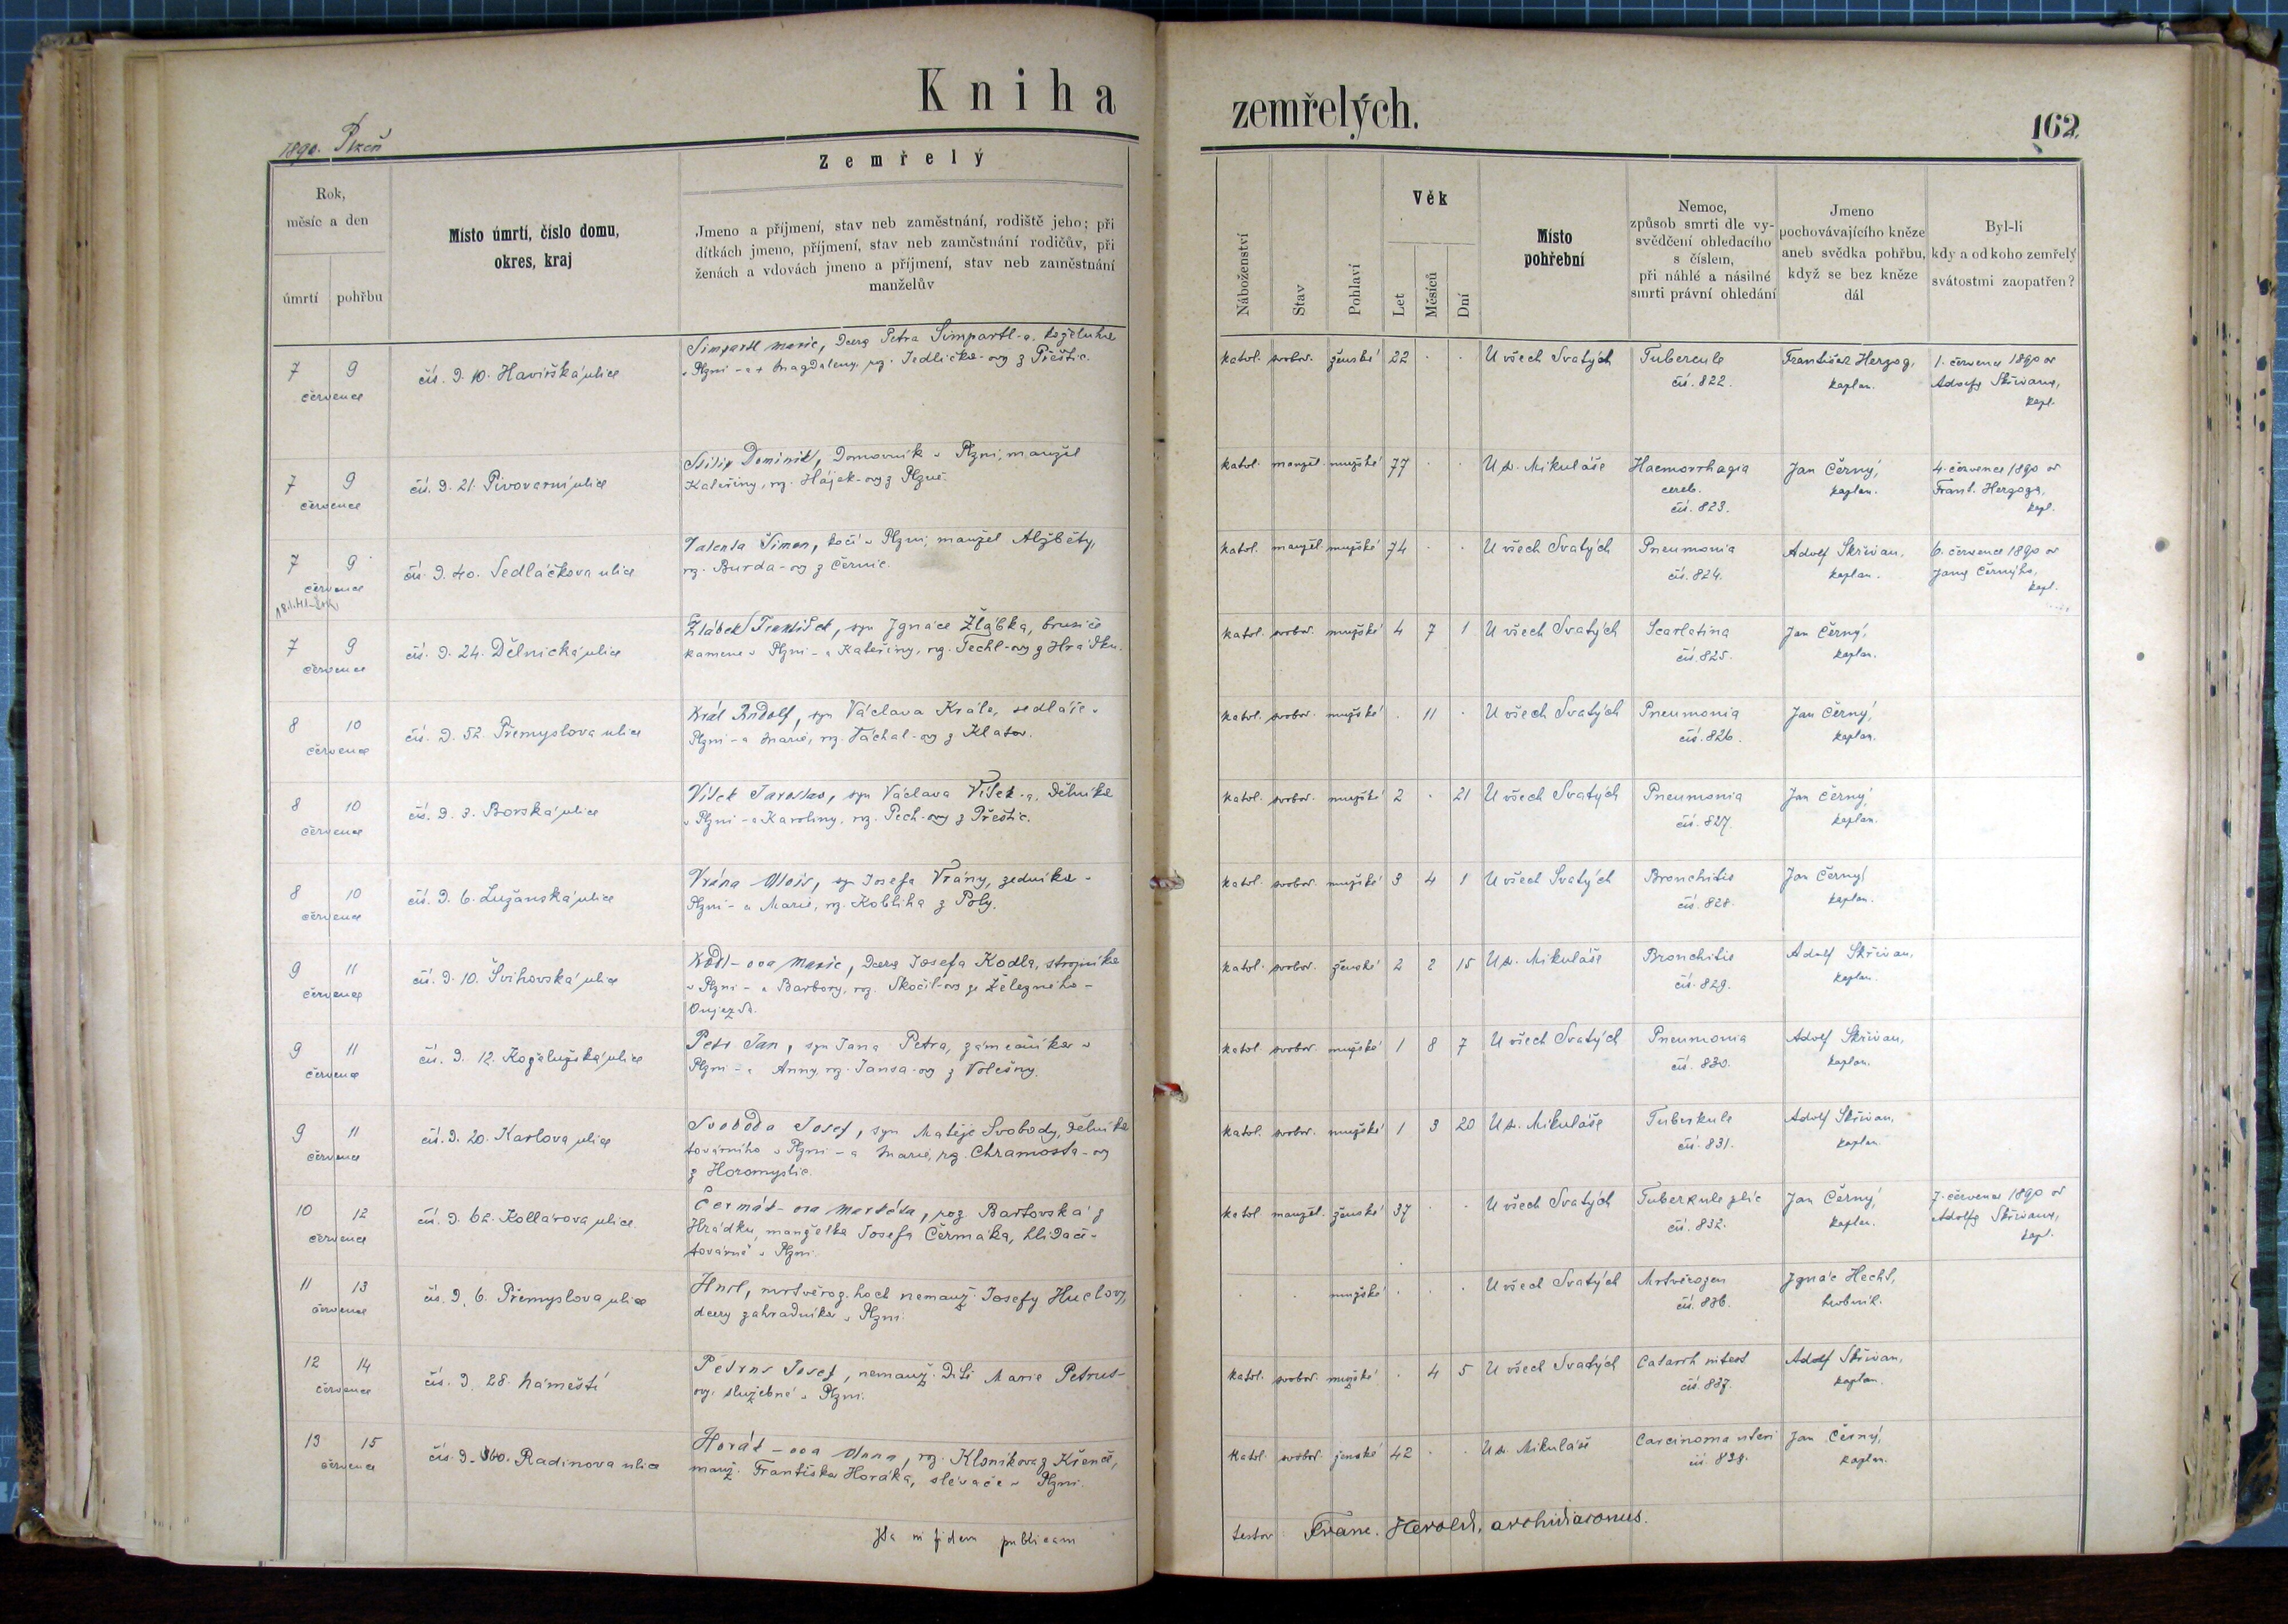 Kniha
zemřelých.
162
1890. Plzeň
Zemřelý
Rok,
měsíc a den
úmrtí
pohřbu
Místo úmrtí, číslo domu,
okres, kraj
Jmeno a příjmení, stav neb zaměstnání, rodiště jeho; při
dítkách jmeno, příjmení, stav neb zaměstnání rodičův, při
ženách a vdovách jmeno a příjmení, stav neb zaměstnání
manželův
Náboženství
Stav
Pohlaví
Věk
Let
Měsíců
Dní
Místo
pohřební
Nemoc,
způsob smrti dle vy-
svědčení ohledacího
s číslem,
při náhlé a násilné
smrti právní ohledání
Jmeno
pochovávajícího kněze
aneb svědka pohřbu,
když se bez kněze
dál
Byl-li
kdy a od koho zemřelý
svátostmi zaopatřen?
7 9
července
čís. d. 10. Havířská ulice
Simpartl Marie, dcera Petra Simpartl-a, koželuha
v Plzni - a + Magdaleny, rz. Jedlička-ovy z Přeštic.
katol. svobod. ženské 22 . . U všech Svatých
Tubercule
čís. 822.
František Herzog,
kaplan.
1. července 1890 od
Adolfa Skřivana,
kapl.
7 9
července
čís. d. 21. Pivovarní ulice
Dominik, domovník v Plzni, manžel
Kateřiny, rz. Hájek-ovy z Plzně.
katol. manžel. mužské 77 . . U sv. Mikuláše
Haemorrhagia
cereb.
čís. 823.
Jan Černý,
kaplan.
4. července 1890 od
Frant. Herzoga,
kapl.
7 9
července
čís. d. 40. Sedláčkova ulice
Valenta Šimon, kočí v Plzni, manžel Alžběty,
rz. Burda-ovy z Černic.
katol. manžel. mužské 74 . . U všech Svatých
Pneumonia
čís. 824.
Adolf Skřivan,
kaplan.
6. července 1890 od
Jana Černýho,
kapl.
7 9
července
čís. d. 24. Dělnická ulice
Žlábek František, syn Ignáce Žlábka, brusiče
kamene v Plzni - a Kateřiny, rz. Techl-ovy z Hrádku.
katol. svobod. mužské 4 7 1 U všech Svatých
Scarlatina
čís. 825.
Jan Černý,
kaplan.
8 10
července
čís. d. 52. Přemyslova ulice
Král Rudolf, syn Václava Krále, sedláře v
Plzni - a Marie, rz. Váchal-ovy z Klatov.
katol. svobod. mužské . 11 . U všech Svatých
Pneumonia
čís. 826.
Jan Černý,
kaplan.
8 10
července
čís. d. 3. Borská ulice
Vílek Jaroslav, syn Václava Vílek-a, dělníka
v Plzni - a Karoliny, rz. Pech-ovy z Přeštic.
katol. svobod. mužské 2 . 21 U všech Svatých
Pneumonia
čís. 827.
Jan Černý,
kaplan.
8 10
července
čís. d. 6. Lužánská ulice
Vrána Alois, syn Josefa Vrány, zedníka v
Plzni - a Marie, rz. Kobliha z Poly.
katol. svobod. mužské 3 4 1 U všech Svatých
Bronchitis
čís. 828.
Jan Černý,
kaplan.
9 11
července
čís. d. 10. Švihovská ulice
Kodl-ova Marie, dcera Josefa Kodla, strojníka
v Plzni - a Barbory, rz. Skočil-ovy ze Železného-
Oujezda.
katol. svobod. ženské 2 2 15 U sv. Mikuláše
Bronchitis
čís. 829.
Adolf Skřivan,
kaplan.
9 11
července
čís. d. 12. Koželužská ulice
Petr Jan, syn Jana Petra, zámečníka v
Plzni - a Anny, rz. Jansa-ovy z Volešny.
katol. svobod. mužské 1 8 7 U všech Svatých
Pneumonia
čís. 830.
Adolf Skřivan,
kaplan.
9 11
července
čís. d. 20. Karlova ulice
Svoboda Josef, syn Matěje Svobody, dělníka
továrního v Plzni - a Marie, rz. Chramosta-ovy
z Horomyslic.
katol. svobod. mužské 1 3 20 U sv. Mikuláše
Tuberkule
čís. 831.
Adolf Skřivan,
kaplan.
10 12
července
čís. d. 62. Kollárova ulice
Čermák-ova Markéta, roz. Bartovská z
Hrádku, manželka Josefa Čermáka, hlídače v
továrně v Plzni.
katol. manžel. ženské 37 . . U všech Svatých
Tuberkule plic
čís. 832.
Jan Černý,
kaplan.
7. července 1890 od
Adolfa Skřivana,
kapl.
11 13
července
čís. d. 6. Přemyslova ulice
mrtvěroz. hoch nemanž. Josefy Huclovy,
dcery zahradníka v Plzni.
. . mužské . . . U všech Svatých
Mrtvěrozen
čís. 836.
Ignác Hecht,
hrobník.
12 14
července
čís. d. 28. náměstí
Petrus Josef, nemanž. dítě Marie Petrus-
ovy, služebné v Plzni.
katol. svobod. mužské . 4 5 U všech Svatých
Catarrh intest
čís. 837.
Adolf Skřivan,
kaplan.
13 15
července
čís. d. 360. Radinova ulice
Horák-ova Anna, rz. Kloníkova z Křenče,
manž. Františka Horáka, slévače v Plzni.
katol. svobod. ženské 42 . . U sv. Mikuláše
Carcinoma uteri
čís. 838.
Jan Černý,
kaplan.
Ita in fidem publicam
testor Franc. Herold, archidiaconus.